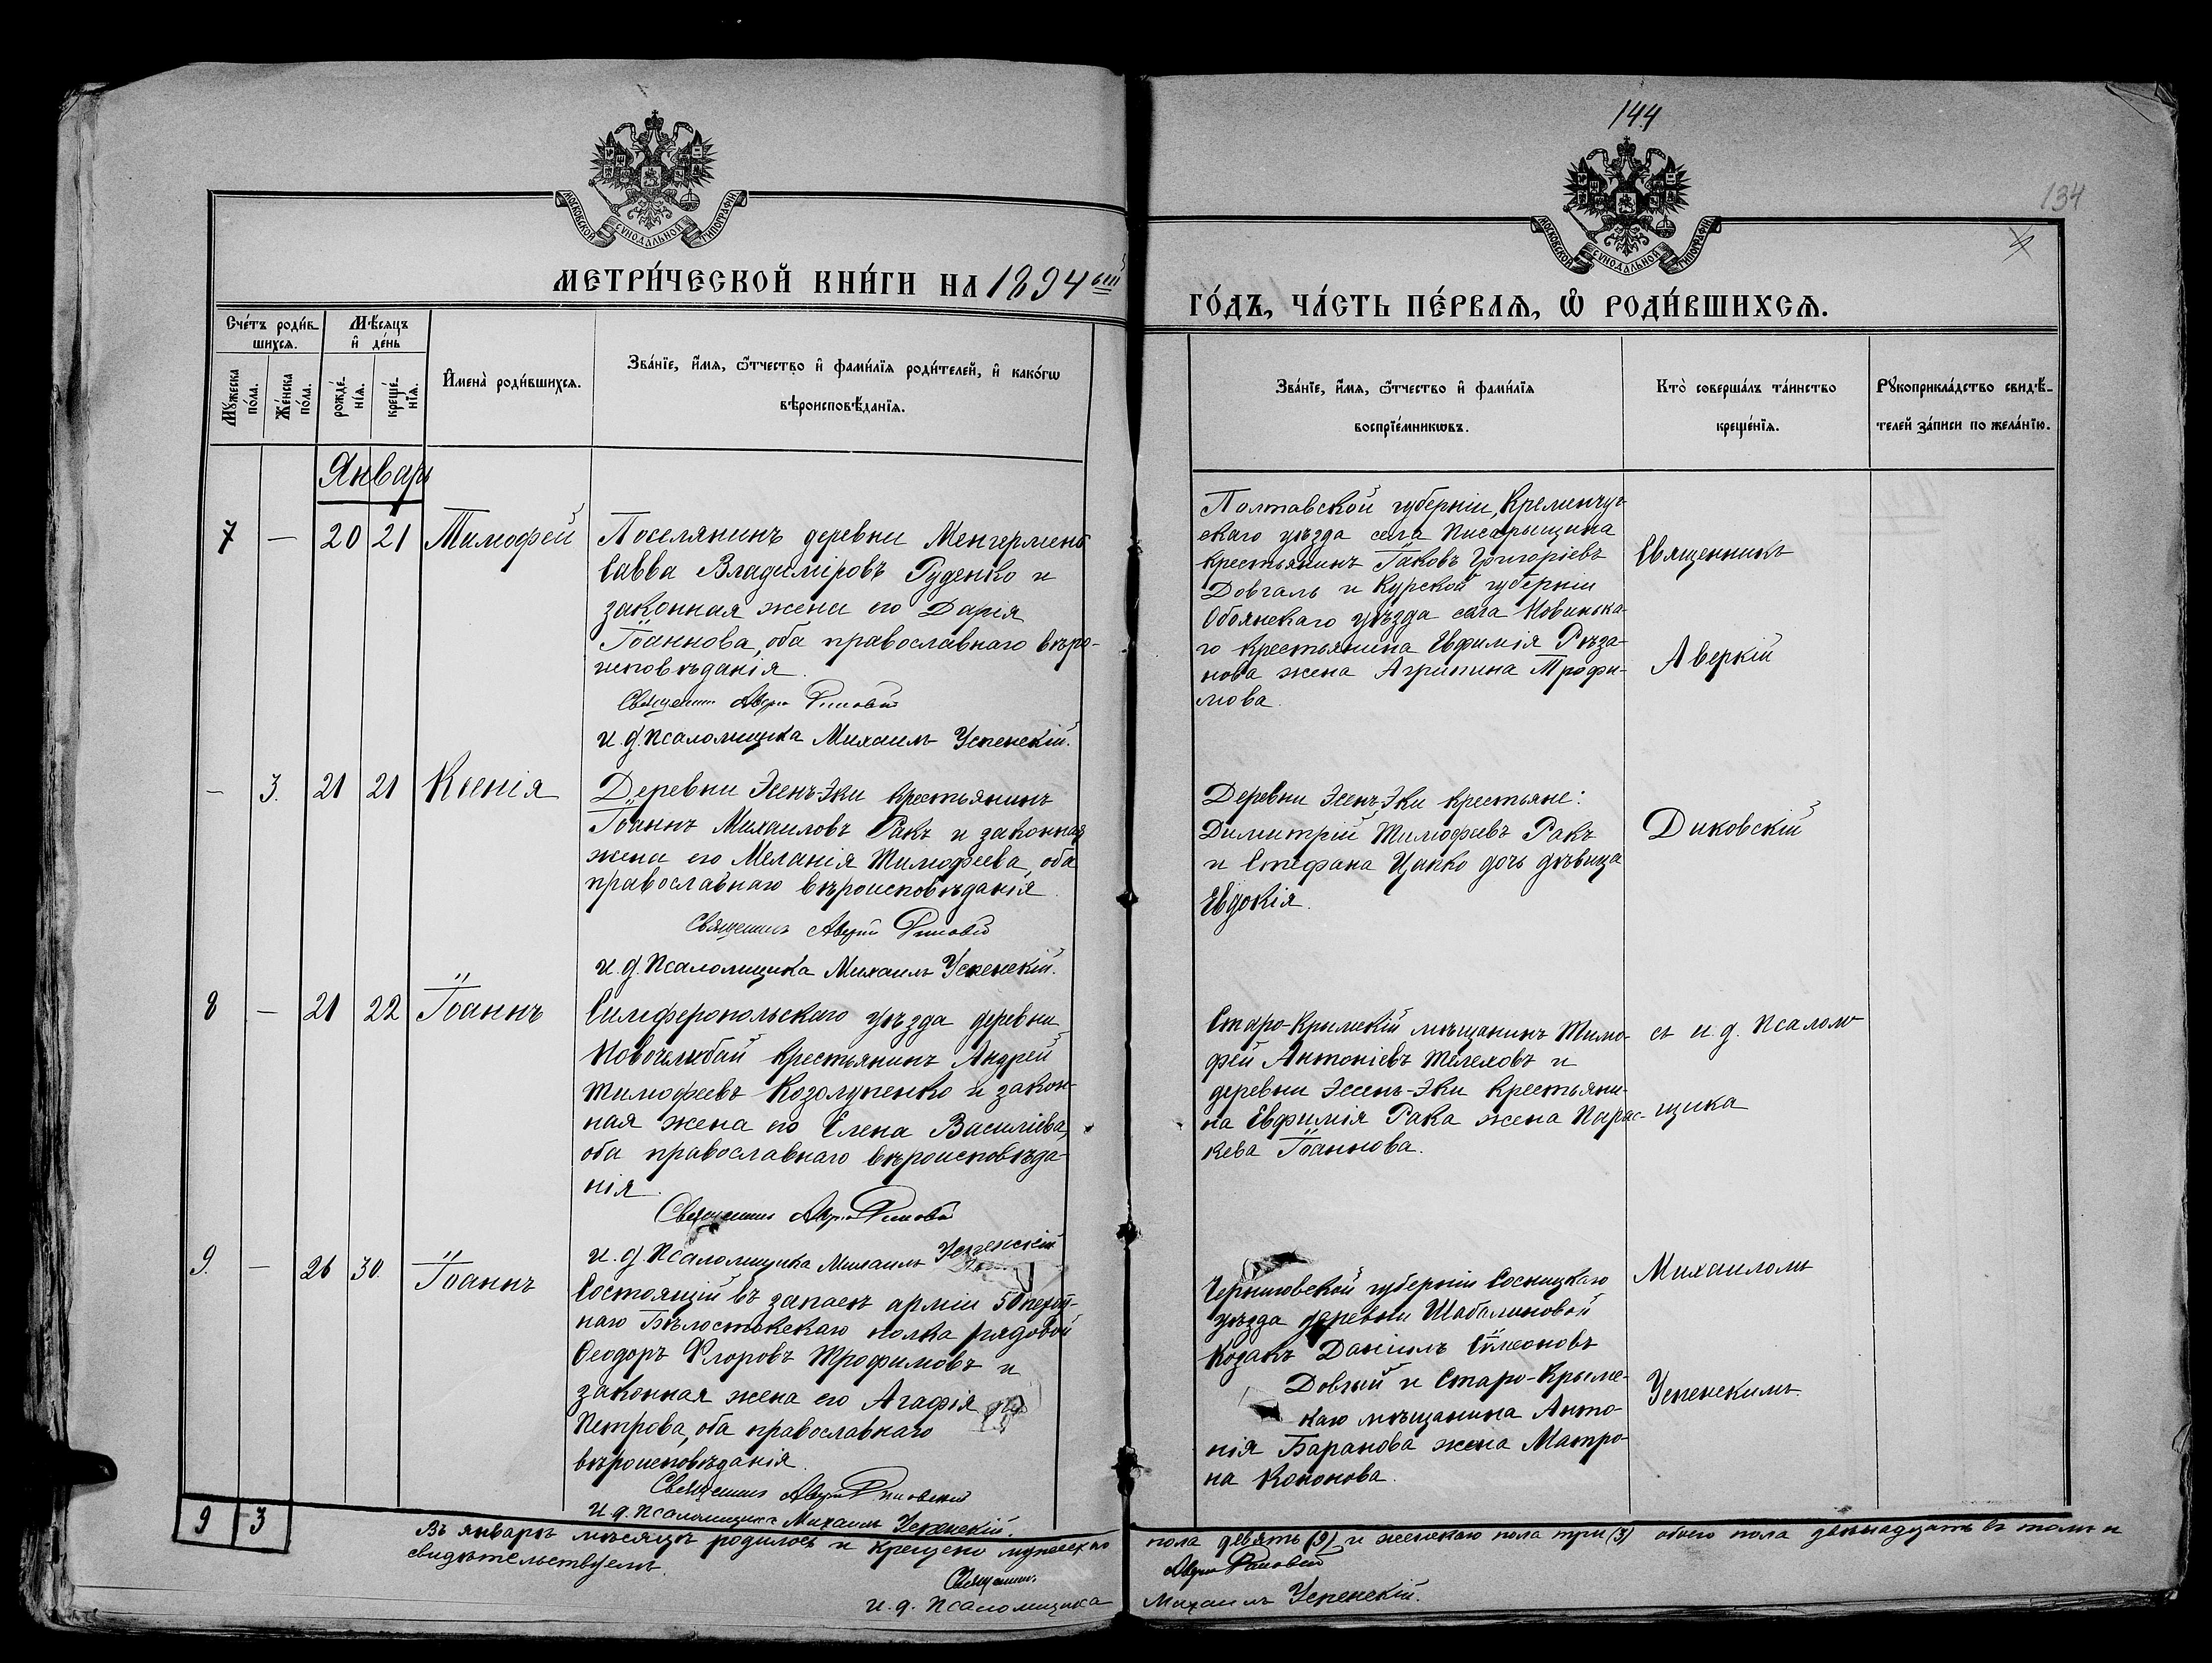 144
134
МОСКОВСКОЙ СѴНОДАЛЬНОЙ ТИПОГРАФІИ
МОСКОВСКОЙ СѴНОДАЛЬНОЙ ТИПОГРАФІИ
МЕТРИ́ЧЕСКОЙ КНИ́ГИ НА 1894ый
ГО́ДЪ, ЧА́СТЬ ПЕ́РВАѦ, Ѡ҆ РОДИ́ВШИХСѦ.
Сче́тъ роди́в-
шихсѧ.
Мѣ́сѧцъ
и҆ де́нь
Мꙋ́жеска
по́ла.
Же́нска
по́ла.
рожде́-
нїѧ.
креще́-
нїѧ.
И҆мена̀ роди́вшихсѧ.
Зва́нїе, и҆́мѧ, ѻ҆́тчество и҆ фами́лїѧ роди́телей, и҆ како́гѡ
вѣроисповѣ́данїѧ.
Зва́нїе, и҆́мѧ, ѻ҆́тчество и҆ фами́лїѧ
воспрїе́мникѡвъ.
Кто̀ соверша́лъ та́инство
креще́нїѧ.
Рꙋкоприкла́дство свидѣ́-
телей за́писи по жела́нїю.
Январь
7 — 20 21 Тимофей
Поселянинъ деревни Менгермень
Савва Владиміровъ Руденко и
законная жена его Дарія
Іоаннова, оба православнаго вѣро-
исповѣданія.
Священникъ Аверкій Диковскій
И. д. псаломщика Михаилъ Успенскій.
Полтавской губерніи, Кременчуг-
скаго уѣзда села Писарыщина
крестьянинъ Іаковъ Григоріевъ
Довгаль и Курской губерніи
Обоянскаго уѣзда села Новинька-
го крестьянина Евфимія Рѣза-
нова жена Агрипина Трофи-
мова.
Священникъ
Аверкій
— 3. 21 21 Ксенія
Деревни Эсенъ-Эки крестьянинъ
Іоаннъ Михаиловъ Ракъ и законная
жена его Меланія Тимофеева, оба
православнаго вѣроисповѣданія.
Священникъ Аверкій Диковскій
И. д. Псаломщика Михаилъ Успенскій.
Деревни Эсенъ-Эки крестьяне:
Димитрій Тимофеевъ Ракъ
и Стефана Цапко дочь дѣвица
Евдокія.
Диковскій
8 — 21 22 Іоаннъ
Симферопольскаго уѣзда деревни
Новочелибай крестьянинъ Андрей
Тимофеевъ Козолупенко и закон-
ная жена его Елена Василіева,
оба православнаго вѣроисповѣда-
нія.
Священникъ Аверкій Диковскій
И. д. Псаломщика Михаилъ Успенскій
Старо-Крымскій мѣщанинъ Тимо-
фей Антоніевъ Телеховъ и
деревни Эсенъ-Эки крестьяни-
на Евфимія Рака жена Парас-
кева Іоаннова.
съ и. д. псалом-
щика
9. — 26 30. Іоаннъ
Состоящій въ запасѣ арміи 50 перѣ-
наго Бѣлостокскаго полка рядовой
Ѳеодоръ Флоровъ Трофимовъ и
законная жена его Агафія
Петрова, оба православнаго
вѣроисповѣданія.
Священникъ Аверкій Диковскій
И. д. псаломщика Михаилъ Успенскій.
Черниговской губерніи Сосницкаго
уѣзда деревни Шабалиновой
козакъ Даніилъ Сѵмеоновъ
Довгый и Старо-Крымс-
каго мѣщанина Анто-
нія Баранова жена Матро-
на Кононова.
Михаиломъ
Успенскимъ.
9 3
Въ январѣ мѣсяцѣ родилось и крещено мужескаго пола девять (9) и женскаго пола три (3) обоего пола двѣнадцать въ томъ и
свидѣтельствуемъ.
Священникъ Аверкій Диковскій
И. д. псаломщика Михаилъ Успенскій.